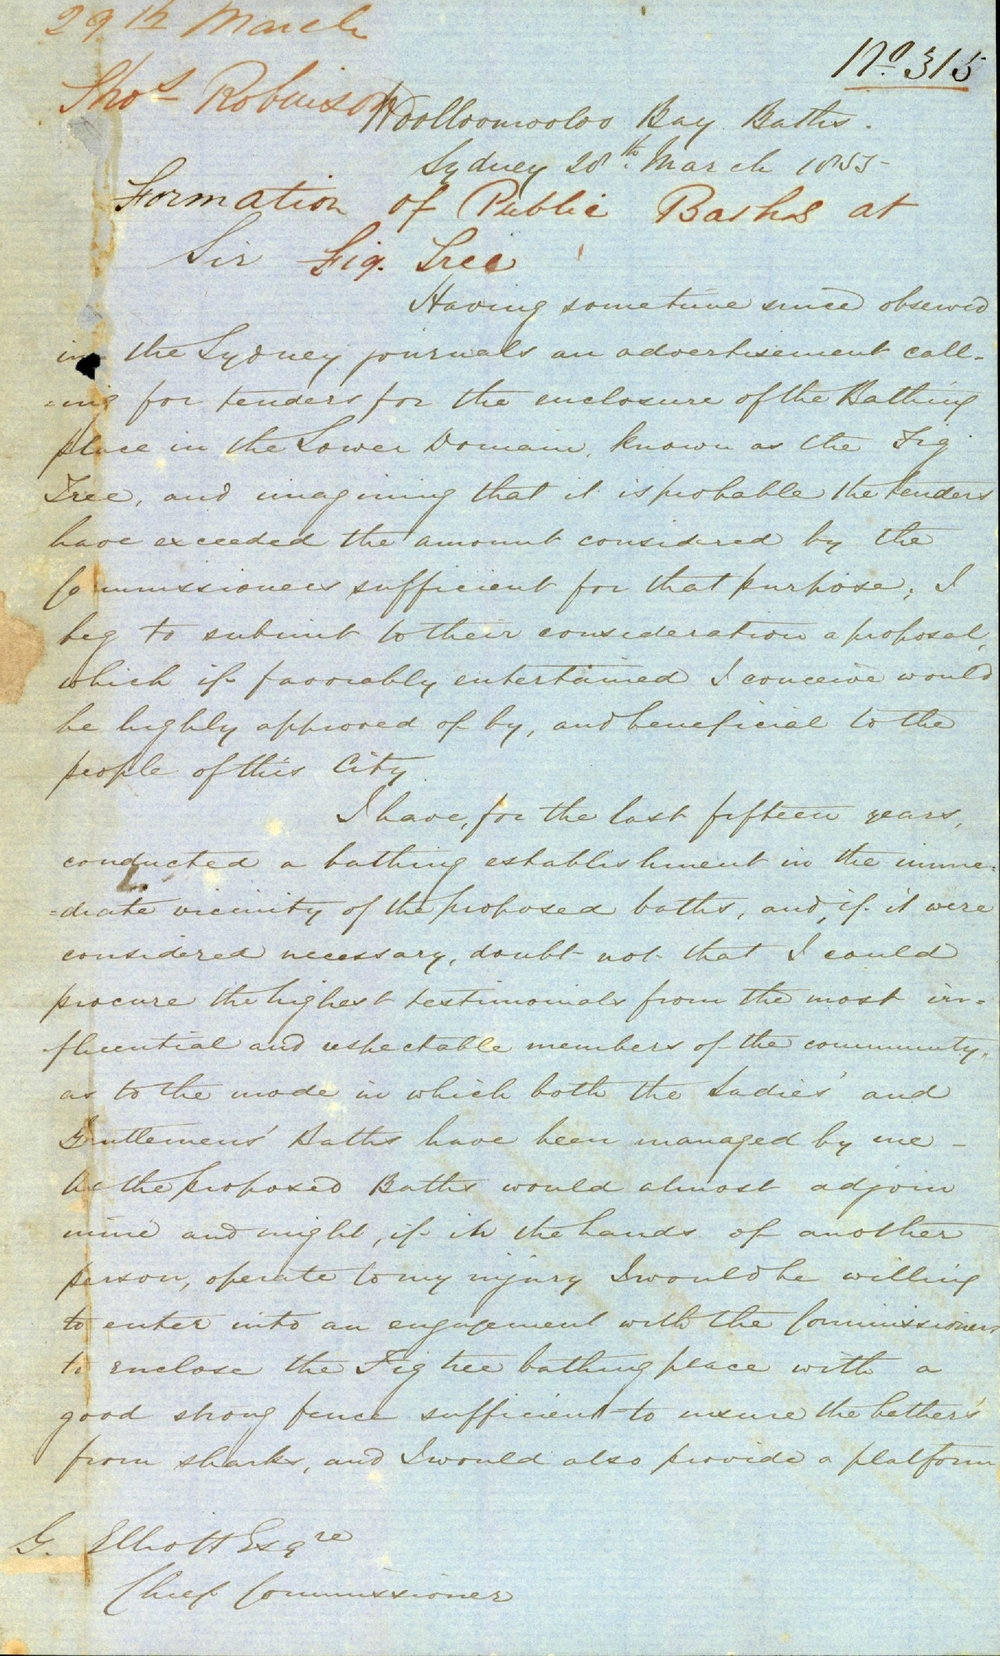 29th March
No 315
Thos Robinson
Woolloomooloo Bay Baths.
Sydney 28th March 1855
Formation of Public Baths at
Fig. Tree
Sir
Having sometime since observed
in the Sydney journals an advertisement call-
=ing for tenders for the enclosure of the Bathing
place in the Lower Domain, known as the Fig
Tree, and imagining that it is probable the tenders
have exceeded the amount considered by the
Commissioners sufficient for that purpose; I
beg to submit to their consideration a proposal,
which if favorably entertained I conceive would
be highly approved of by, and beneficial to the
people of this City
I have, for the last fifteen years,
conducted a bathing establishment in the imme=
=diate vicinity of the proposed baths, and, if it were
considered necessary, doubt not that I could
procure the highest testimonials from the most in-
-fluential and respectable members of the community,
as to the mode in which both the Ladies' and
Gentlemens' Baths have been managed by me -
As the proposed Baths would almost adjoin
mine and might, if in the hands of another
person, operate to my injury I would be willing
to enter into an engagement with the Commissioners
to enclose the Fig tree bathing place with a
good strong fence sufficient to insure the bather's
from sharks, and I would also provide a platform
G. Elliott Esqre
Chief Commissioner